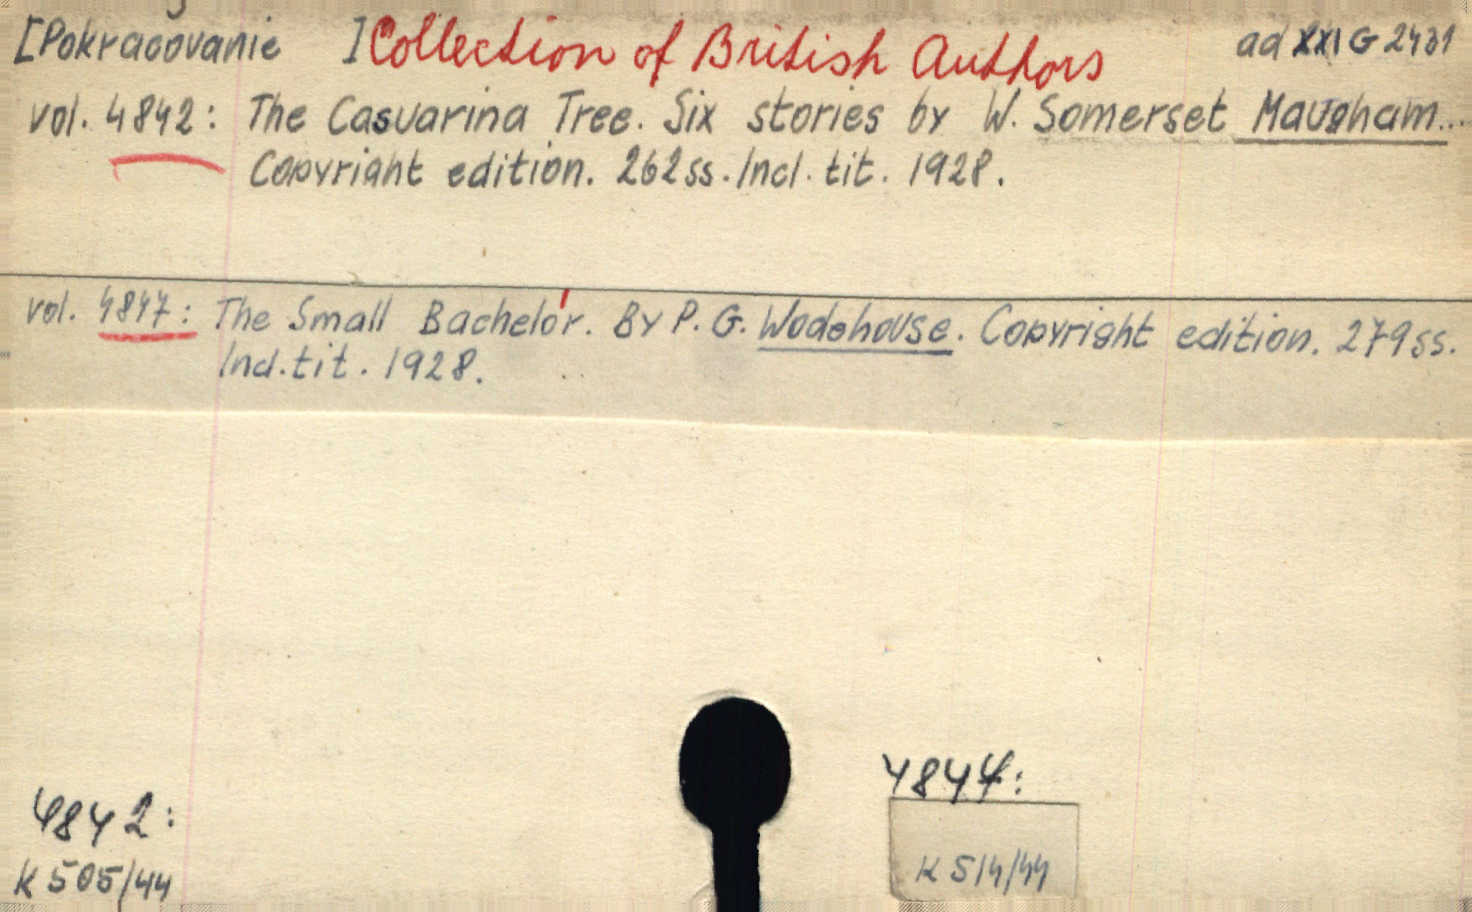 [Pokračovanie ] Collection of British Authors ad XXI G 2431
vol. 4842: The Casuarina Tree. Six stories by W. Somerset Maugham...
Copyright edition. 262 ss. Incl. tit. 1928.
vol. 4847: The Small Bachelor. By P. G. Wodehouse. Copyright edition. 279 ss.
Incl. tit. 1928.
4842:
K 505/44
4847:
K 514/44